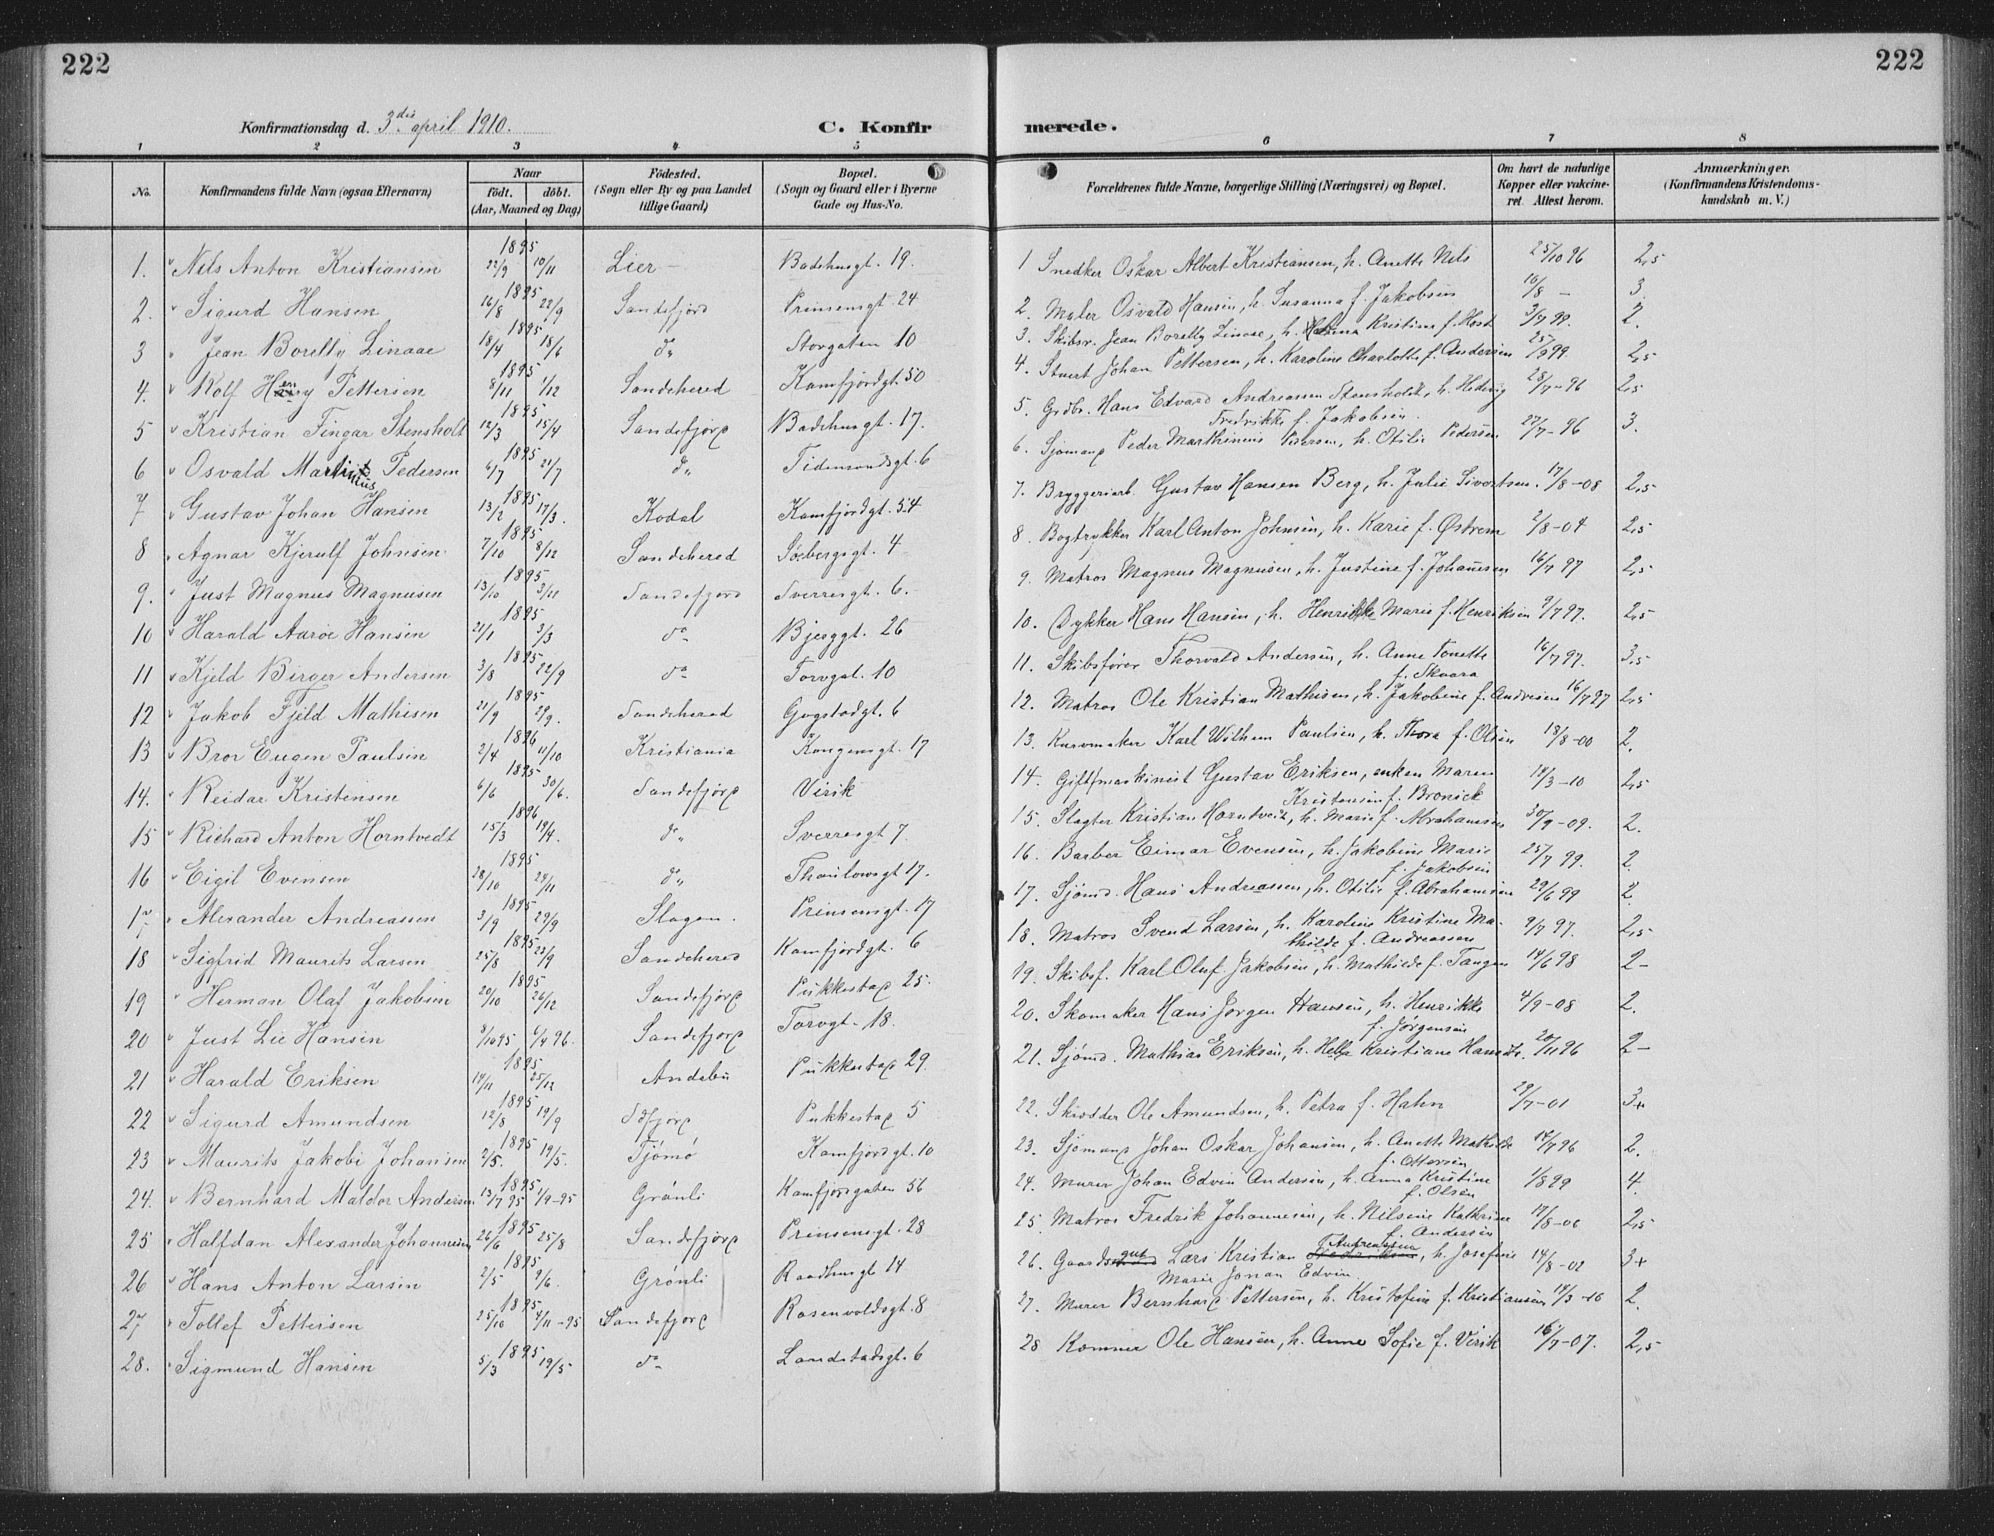 222
222
Konfirmationsdag d. 3die april 1910.
C. Konfir
merede.
1 2 3 4 5 6 7 8
No. Konfirmandens fulde Navn (ogsaa Efternavn) Naar født. døbt. (Aar, Maaned og Dag) Fødested. (Sogn eller By og paa Landet tillige Gaard) Bopæl. (Sogn og Gaard eller i Byerne Gade og Hus-No.
Forældrenes fulde Navne, borgerlige Stilling (Næringsvei) og Bopæl. Om havt de naturlige Kopper eller vakcineret. Attest herom. Anmærkninger. (Konfirmandens Kristendomskundskab m. V.)
1. Nils Anton Kristiansen 1895 22/9 10/11 Lier Badehusgt. 19.
2. Sigurd Hansen 1895 16/8 22/9 Sandefjord Prinsensgt. 24
3 Jean Borelly Linaae 1895 18/4 18/6 do Storgaten 10
4. Rolf Henry Pettersen 1895 8/11 1/12 Sandeherred Kamfjordgt. 50
5 Kristian Fingar Stensholt 1895 12/3 15/4 Sandefjord Badehusgt. 17.
6 Osvald Martinius Pedersen 1895 6/7 21/7 do Tidemandsgt. 6
7 Gustav Johan Hansen 1895 13/2 17/3. Kodal Kamfjordgt. 54
8 Agnar Kjerulf Johnsen 1895 7/10 8/12 Sandeherred Søebergsgt. 4
9. Just Magnus Magnusen 1895 13/10 3/11 Sandefjord Sverresgt. 6.
10 Harald Aarøe Hansen 1895 21/1 3/3 do Bjerggt. 26
11 Kjeld Birger Andersen 1895 3/8 22/9 do Torvgat. 10
12 Jakob Fjeld Mathisen 1895 21/9 29/9. Sandeherred Gogstadgt. 6
13 Bror Eugen Paulsen 1896 2/4 11/10 Kristiania Kongensgt. 17
14. Reidar Kristensen 1895 6/6 30/6. Sandefjord Virik
15 Richard Anton Horntvedt 1896 15/3 19/4. do Sverresgt 7.
16 Eigil Evensen 1895 28/10 24/11 do Thaulowsgt 17.
17 Alexander Andreassen 1895 3/9 29/9 Slagen. Prinsensgt. 17
18 Sigfrid Maurits Larsen 1895 25/8 23/9 Sandeherred Kamfjordgt. 6
19 Herman Olaf Jakobsen 1895 20/10 26/12 Sandefjord Pukkestad 25.
20 Just Lie Hansen 8/10 95 6/4 96. Sandefjord Torvgt. 18.
21 Harald Eriksen 1895 14/11 25/12 Andebu Pukkestad 29.
22 Sigurd Amundsen 1895 12/8 19/9 Sdfjord Pukkestad 5
23 Maurits Jakobi Johansen 1895 2/5. 19/5. Tjømø Kamfjordgt. 10
24. Bernhard Maldor Andersen 1895 13/7 95 1/9-95 Grønli Kamfjordgaten 56
25 Halfdan Alexander Johannesen 1895 26/6 25/8 Sandefjord Prinsensgt. 28
26 Hans Anton Larsen 1895 2/5 9/6. Grønli Raadhusgt 14
27 Tollef Pettersen 1895 25/10 4/11-95 Sandefjord Rosenvoldsgt. 8
28. Sigmund Hansen 1895 5/3 19/5 do Landstadsgt. 6
1 Snedker Oskar Albert Kristiansen, h. Anette Nils 25/10 96 2,5
2. Maler Osvald Hansen, h. Susanna f. Jakobsen 16/8 – 3.
3. Skibsr. Jean Borelly Linaae, h. Helena Kristine f. Høst 3/7 99. 2.
4. Stuert Johan Pettersen, h. Karoline Charlotte f. Andersen 25/7 99. 2,5
5. Grdbr. Hans Edvard Andreassen Stensholdt, h. Hedvig 28/7-96 2,5
Fredrikke f. Jakobsen.
6. Sjømand Peder Marthinius Pedersen, h. Otilie Pedersen 27/7-96 3.
7. Bryggeriarb. Gustav Hansen Berg, h. Julie Sivertsen. 17/8-08 2,5
8. Bogtrykker Karl Anton Johnsen, h. Karie f. Østrem 2/8-04 2,5
9. Matros Magnus Magnusen, h. Justine f. Johannesen 16/7 97 2,5
10. Dykker Hans Hansen, h. Henrikke Marie f. Henriksen 9/7 97. 2,5
11. Skibsfører Thorvald Andersen, h. Anne Tonette 16/7 97. 3,5
f. Skaara
12. Matros Ole Kristian Mathisen, h. Jakobine f. Andresen 16/7 97 2,5
13. Kurvmaker Karl Wilhem Paulsen, h. Thora f. Olsen 18/8-00 2.
14. Gift(maskinist Gustav Eriksen, enken Maren 19/3-10 2,5
Kristensen f. Bronick
15. Slagter Kristian Horntvedt, h. Marie f. Abrahamsen 30/9-09. 2.
16. Barber Eimar Evensen, h. Jakobine Marie 25/7 99. 2
f. Jakobsen
17. Sjømd. Hans Andreassen, h. Otilie f. Abrahamsen 29/6 99 2.
18. Matros Svend Larsen, h. Karoline Kristine Ma- 9/7 97. 2,5
thilde f. Andreassen
19. Skibsf. Karl Oluf Jakobsen, h. Mathilde f. Tangen 14/6 98 2-
20. Skomaker Hans Jørgen Hansen, h. Henrikke 4/9-08 2.
f. Jørgensen
21. Sjømd. Mathias Eriksen, h. Helga Kristiane Hansdtr. 20/11 96 2-
22. Skrædder Ole Amundsen, h. Petra f. Hahn 29/7-01 3+
23. Sjømand Johan Oskar Johansen, h. Anette Mathilde 14/7 96 2.
f. Ottersen
24. Murer Johan Edvin Andersen, h. Anna Kristine 1/8 99 4.
f. Olsen
25. Matros Fredrik Johannesen, h. Nilsine Kathrine 17/8-06 2,5
f. Andersen
26. Gaardsgut Lars Kristian Fredriksen Andreassen, h. Josefine 14/8-02 3+
Marie Jonan Edvin
27. Murer Bernhard Pettersen, h. Kristofine f. Kristiansen 14/3-10 2.
28 Kømner Ole Hansen, h. Anne Sofie f. Virik 16/7-07. 2,5